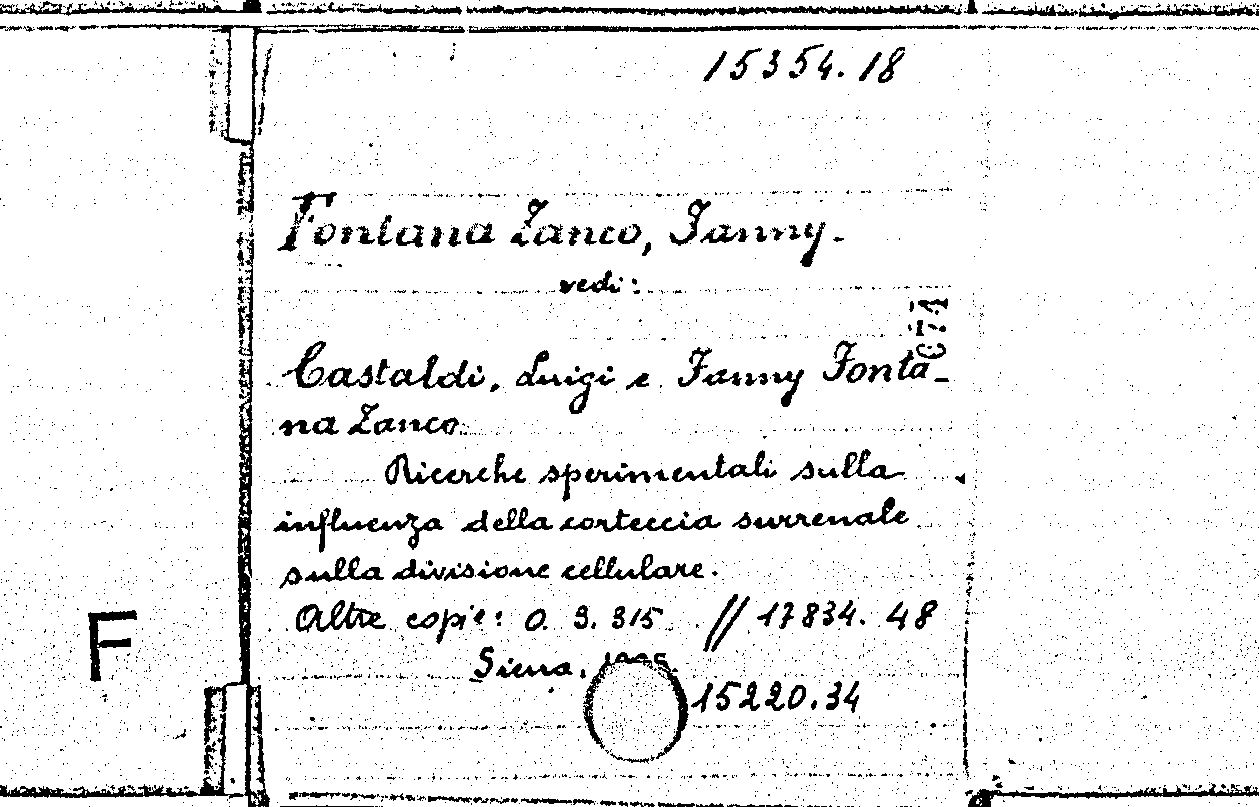 15354.18
Fontana Zanco, Fanny.
vedi:
674
Castaldi, Luigi e Fanny Fonta-
na Zanco
Ricerche sperimentali sulla
influenza della corteccia surrenale
sulla divisione cellulare.
Altre copie: O. 9. 315 // 17834. 48
Siena,
15220.34
F